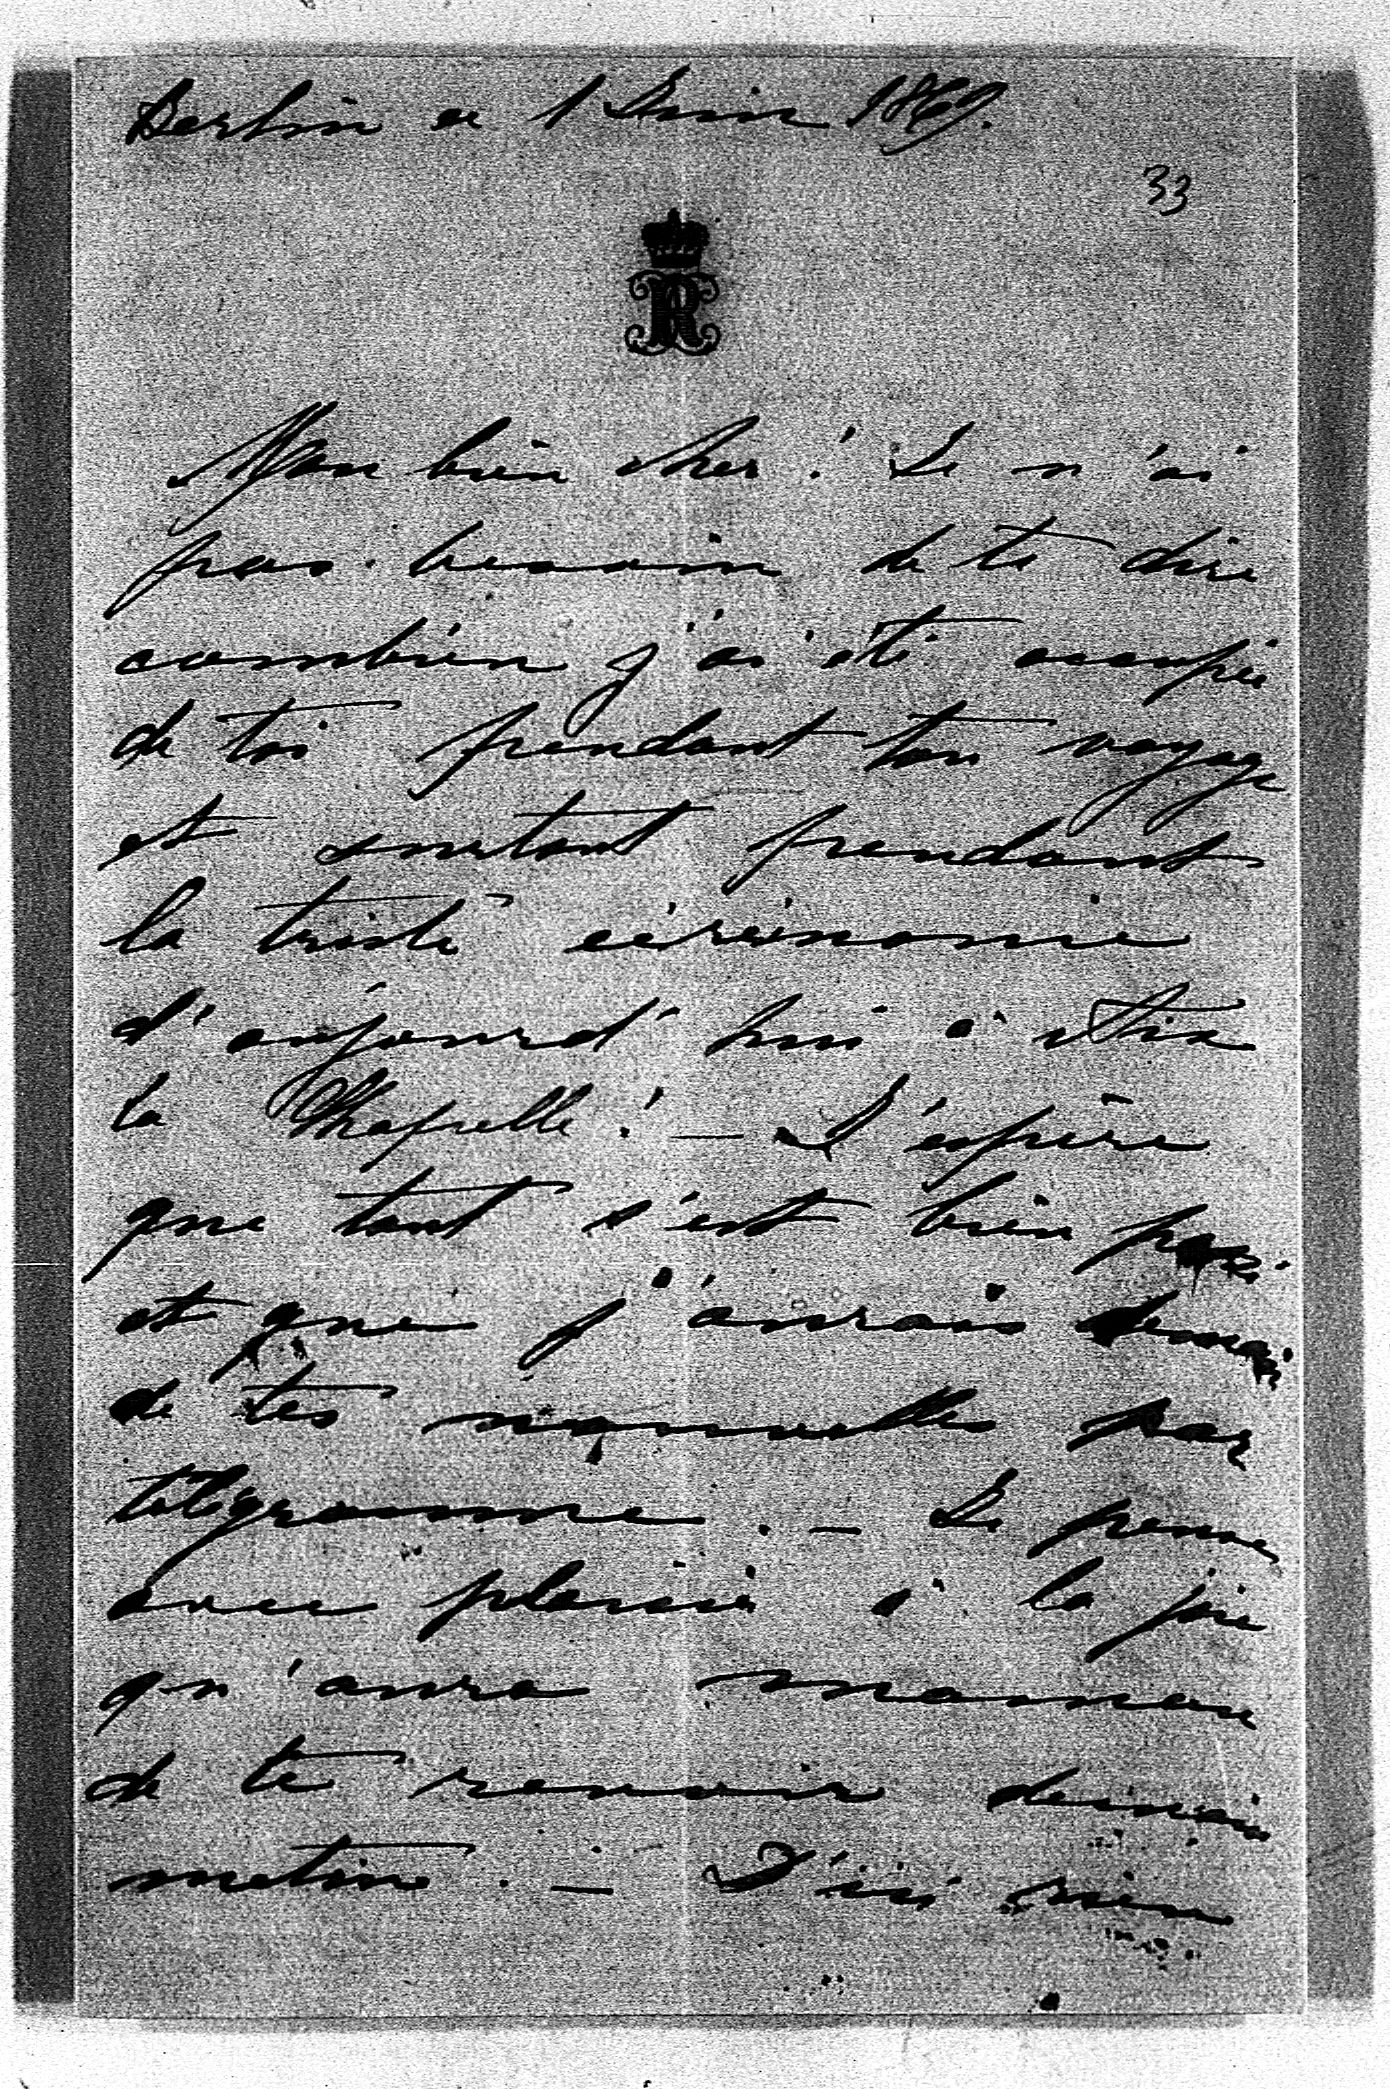 Berlin ce 1 Juin 1869.
33
R
Mon bien cher! Je n'ai
pas besoin de te dire
combien j'ai été occupée
de toi pendant ton voyage
et surtout pendant
la triste cérémonie
d'aujourd'hui à Aix
la Chapelle! — J'espère
que tout s'est bien passé
et que j'aurais demain
de tes nouvelles par
télégramme. — Je pense
avec plaisir à la joie
qu'aura maman
de te revoir demain
matin. — D'ici rien